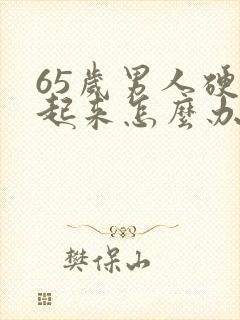 65歲男人硬
起来怎麼办
樊保山